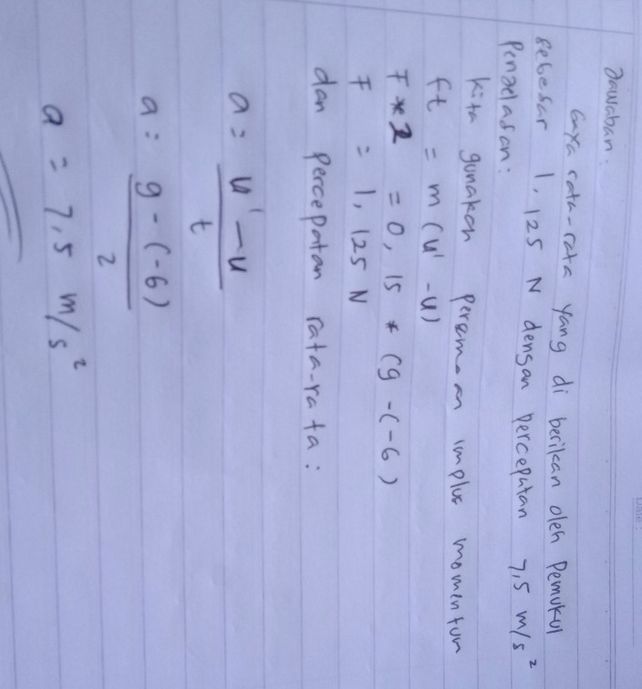 Jawaban:
Gaya rata-rata yang di berikan oleh Pemukul
sebesar 1,125 N dengan percepatan 7,5 m/s²
Penjelasan:
kita gunakan persmaan implus momentum
ft = m (u' - u)
F * 2 = 0,15 * (9 - (-6)
F = 1,125 N
dan percepatan rata-rata:
a = u' - u
t
a = 9 - (-6)
2
a = 7,5 m/s²